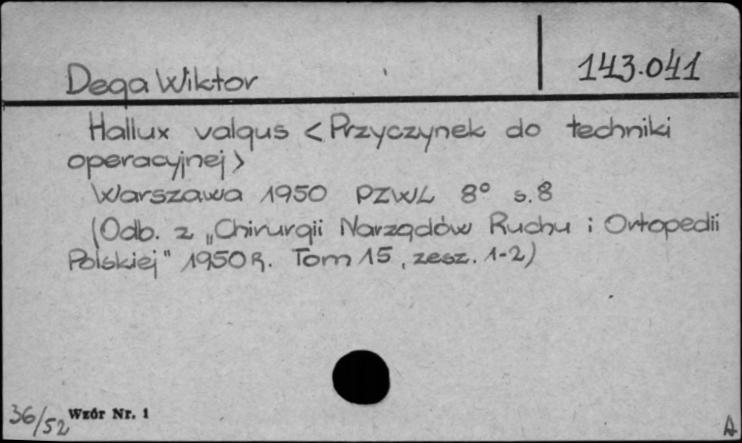 Dega Wiktor 143.041
Hallux valgus <Przyczynek do techniki
operacyjnej>
Warszawa 1950 PZWL 8° s. 8
(Odb. z „Chirurgii Narządów Ruchu i Ortopedii
Polskiej" 1950 R. Tom 15, zesz. 1-2)
36/52 Wzór Nr. 1
A